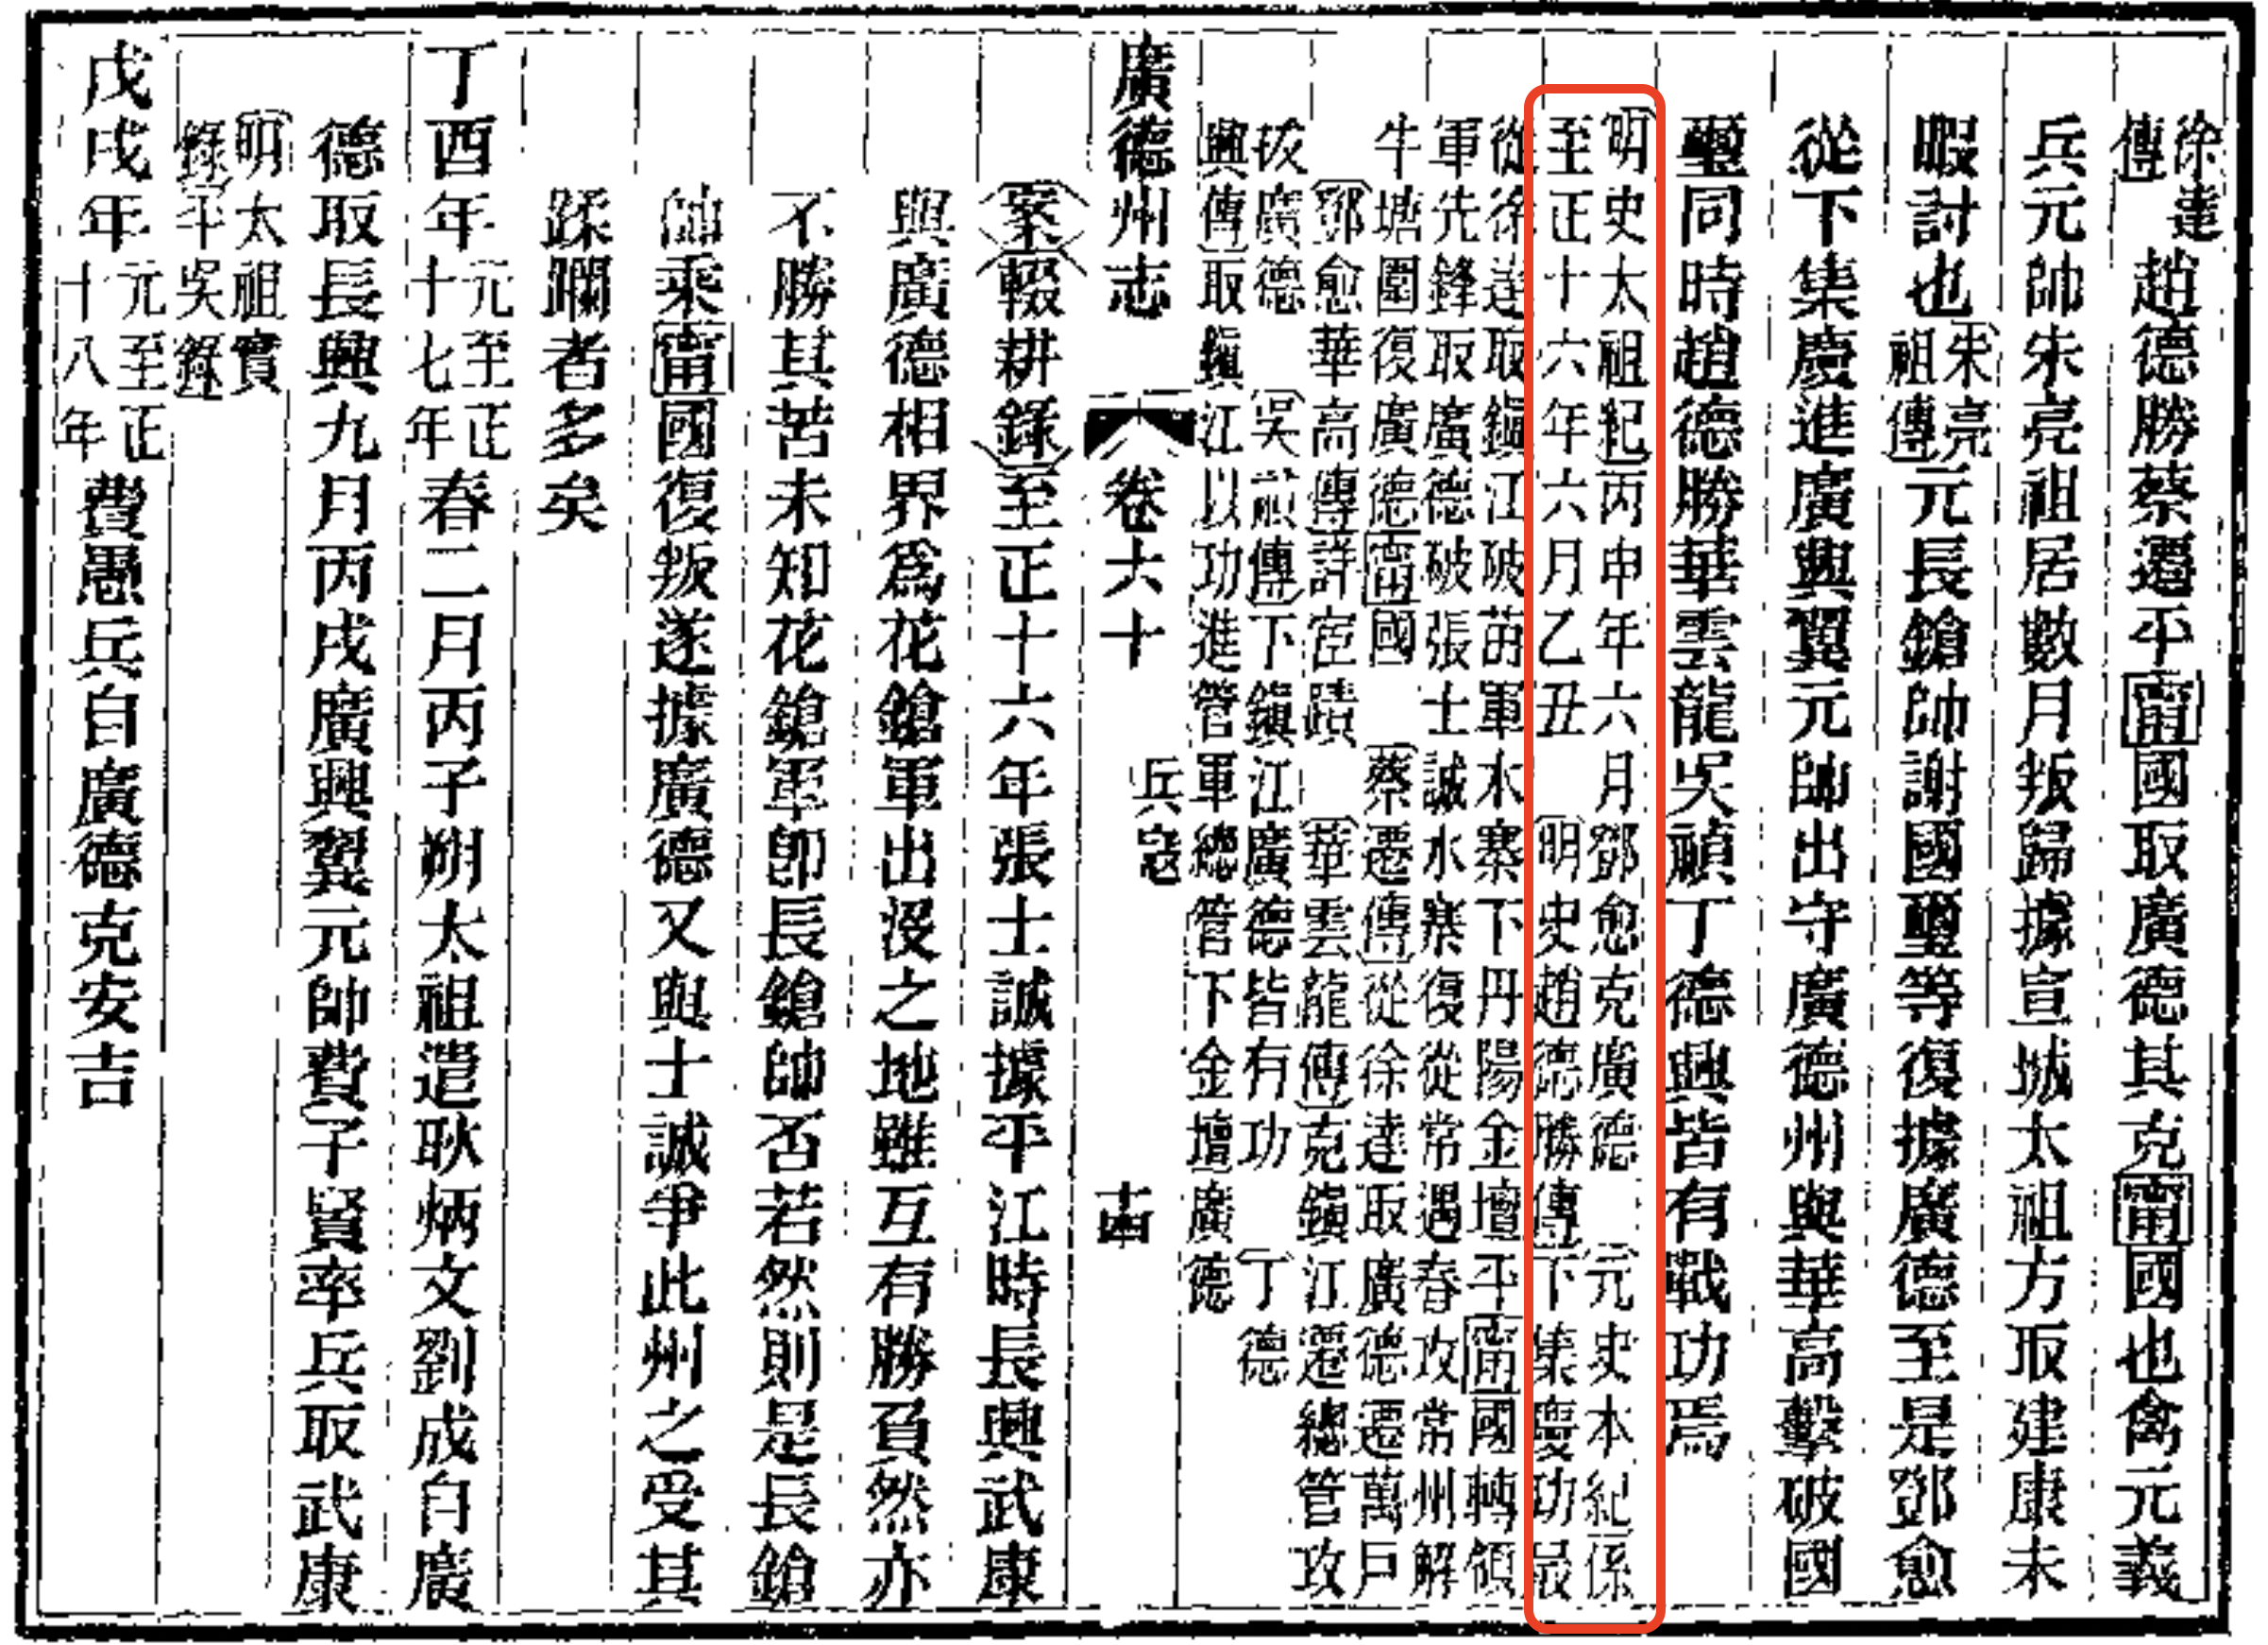 徐達傳趙德勝蔡遷平甯國取廣德其克甯國也禽元義
兵元帥朱亮祖居數月叛歸據宣城太祖方取建康未
暇討也朱亮祖傳元長鎗帥謝國璽等復據廣德至是鄧愈
從下集慶進廣興翼元帥出守廣德州與華高擊破國
璽同時趙德勝華雲龍吳禎丁德興皆有戰功焉
明史太祖紀丙申年六月鄧愈克廣德 元史本紀係
至正十六年六月乙丑 明史趙德勝傳下集慶功最
從徐達取鎭江破苗軍水寨下丹陽金壇平甯國轉領
軍先鋒取廣德破張士誠水寨復從常遇春攻常州解
牛塘圍復廣德甯國 蔡遷傳從徐達取廣德遷萬戶
鄧愈華高傳詳宦蹟 華雲龍傳克鎭江遷總管攻
拔廣德 吳禎傳下鎭江廣德皆有功 丁德
興傳取鎭江以功進管軍總管下金壇廣德
廣德州志 卷六十 兵寇 十四
案輟耕錄至正十六年張士誠據平江時長興武康
與廣德相界爲花鎗軍出沒之地雖互有勝負然亦
不勝其苦未知花鎗軍卽長鎗帥否若然則是長鎗
帥乘甯國復叛遂據廣德又與士誠爭此州之受其
蹂躪者多矣
丁酉年元至正十七年春二月丙子朔太祖遣耿炳文劉成自廣
德取長興九月丙戌廣興翼元帥費子賢率兵取武康
明太祖實
錄平吳錄
戊戌年元至正十八年費愚兵自廣德克安吉